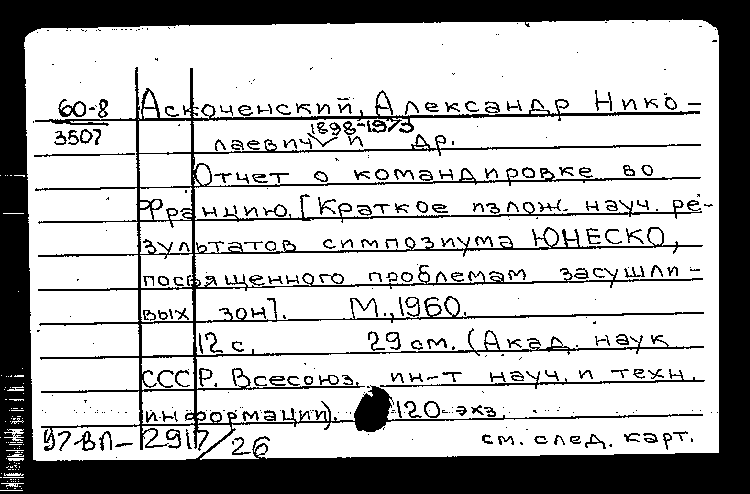 60-8 Аскоченский, Александр Нико-
3507 лаевич 1898-1973 и др.
Отчет о командировке во
Францию. [Краткое излож. науч. ре-
зультатов симпозиума ЮНЕСКО,
посвященного проблемам засушли-
вых зон]. М., 1960.
12 с. 29 см. (Акад. наук
СССР. Всесоюз. ин-т науч. и техн.
информации). 120 экз.
97-ВЛ-2917/26 см. след. карт.